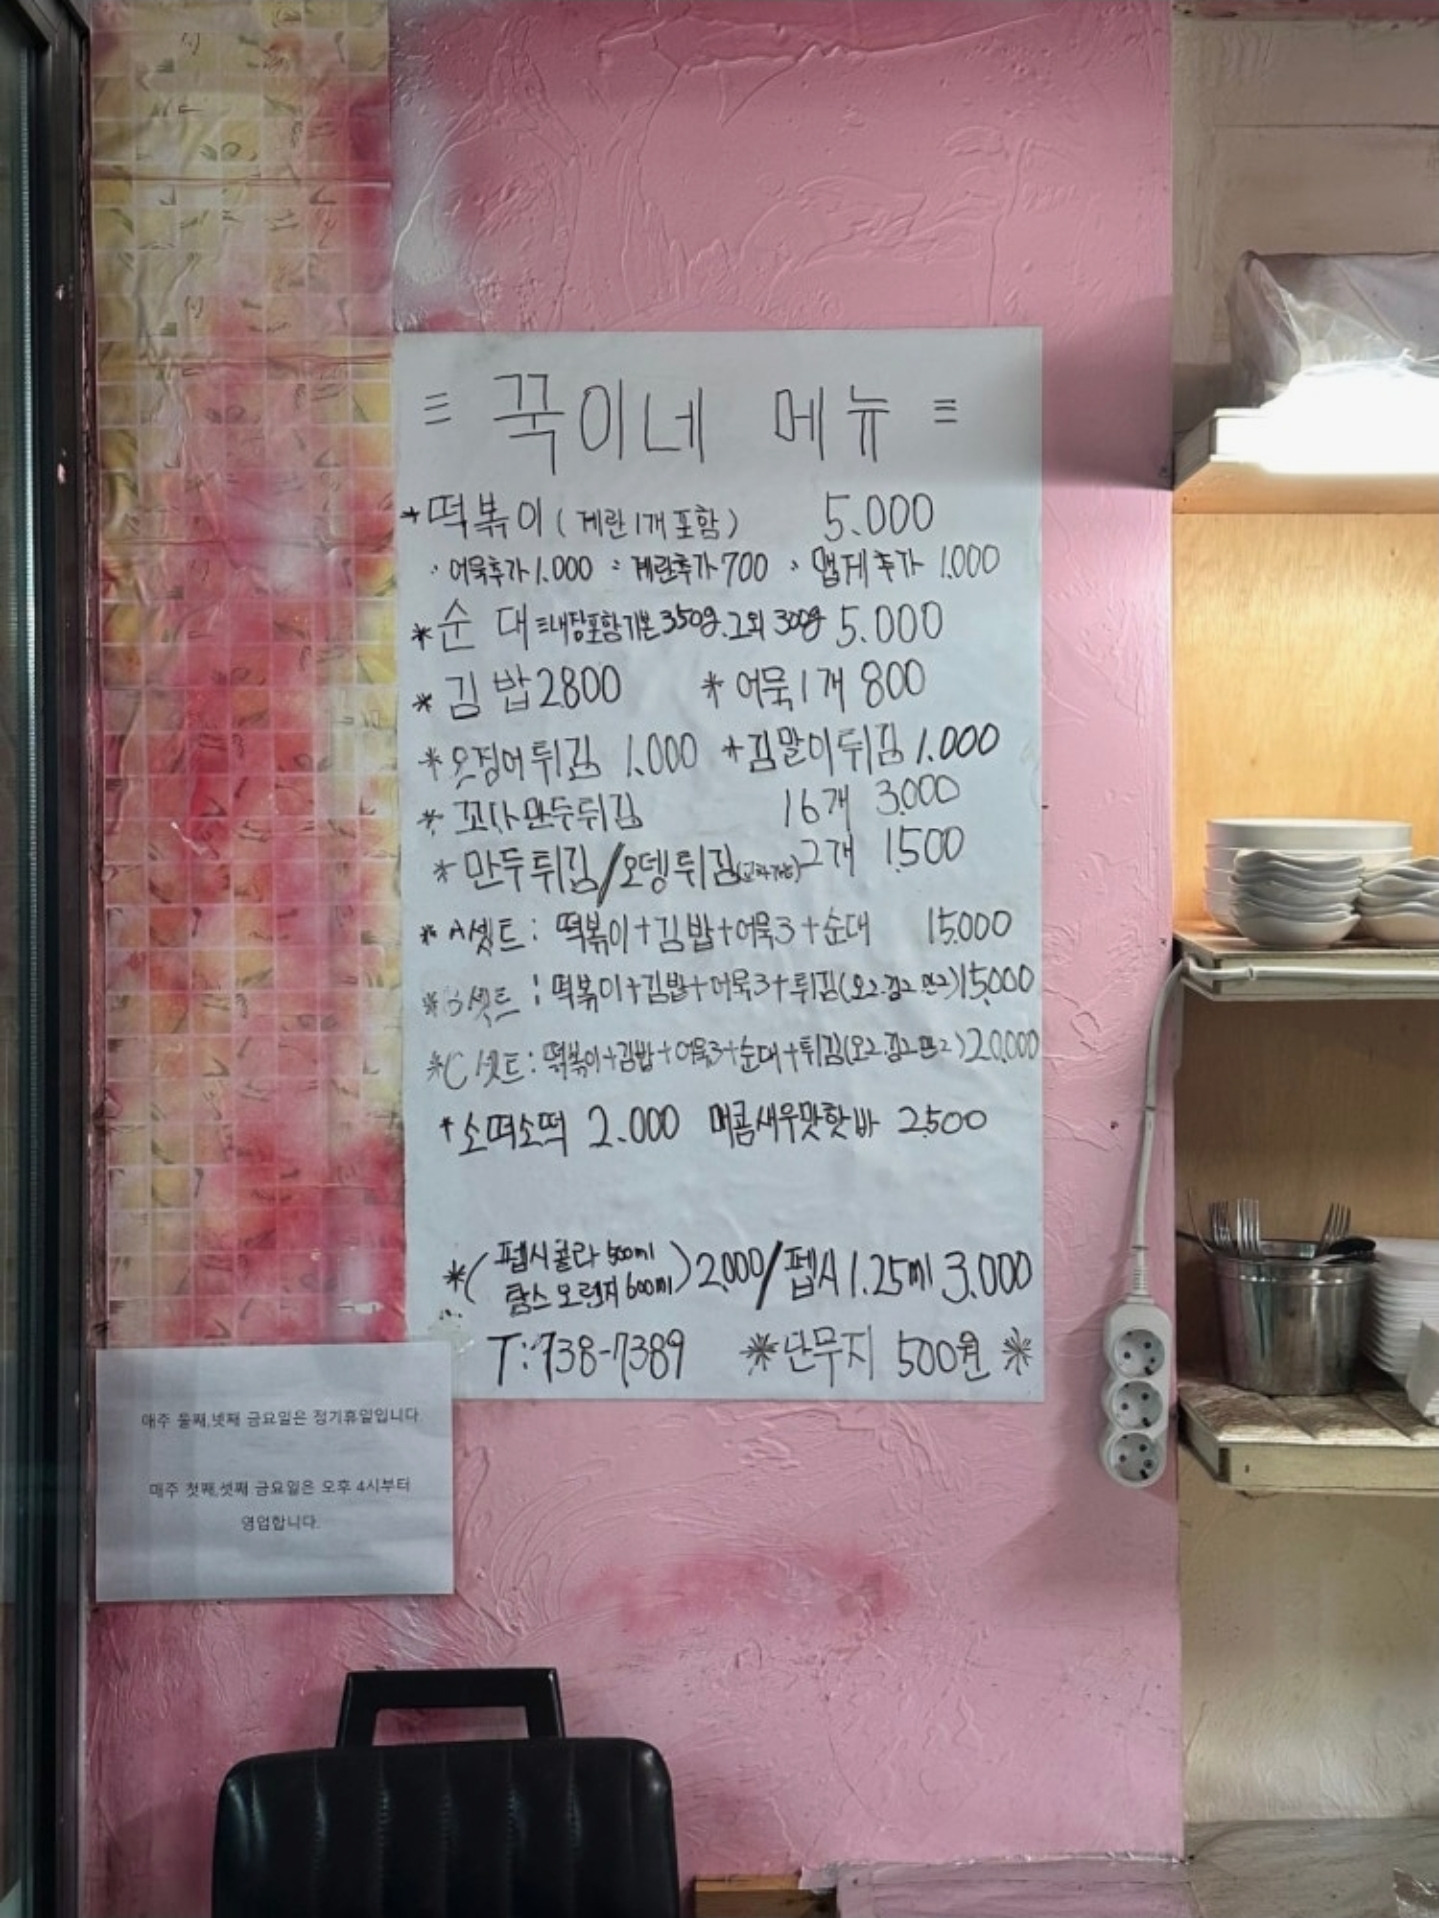 꾹이네 메뉴
*떡볶이 (계란1개 포함) 5.000
어묵추가 1.000 계란추가 700 맵게추가 1.000
*순대 내장포함 기본 350g. 그외 300g 5.000
*김밥 2800 *어묵1개 800
*오징어튀김 1.000 *김말이튀김 1.000
*꼬사만두튀김 16개 3.000
*만두튀김/오뎅튀김(교차가능) 2개 1.500
*A셋트: 떡볶이+김밥+어묵3+순대 15.000
*B셋트: 떡볶이+김밥+어묵3+튀김(오2.김2.만2) 15.000
*C셋트: 떡볶이+김밥+어묵3+순대+튀김(오2.김2.만2) 20.000
*소떡소떡 2.000 매콤새우맛핫바 2.500
*(펩시콜라 500ml
탐스오렌지 600ml) 2.000/펩시 1.25ml 3.000
T:738-7389 *단무지 500원*
매주 둘째,넷째 금요일은 정기휴일입니다.
매주 첫째,셋째 금요일은 오후 4시부터
영업합니다.